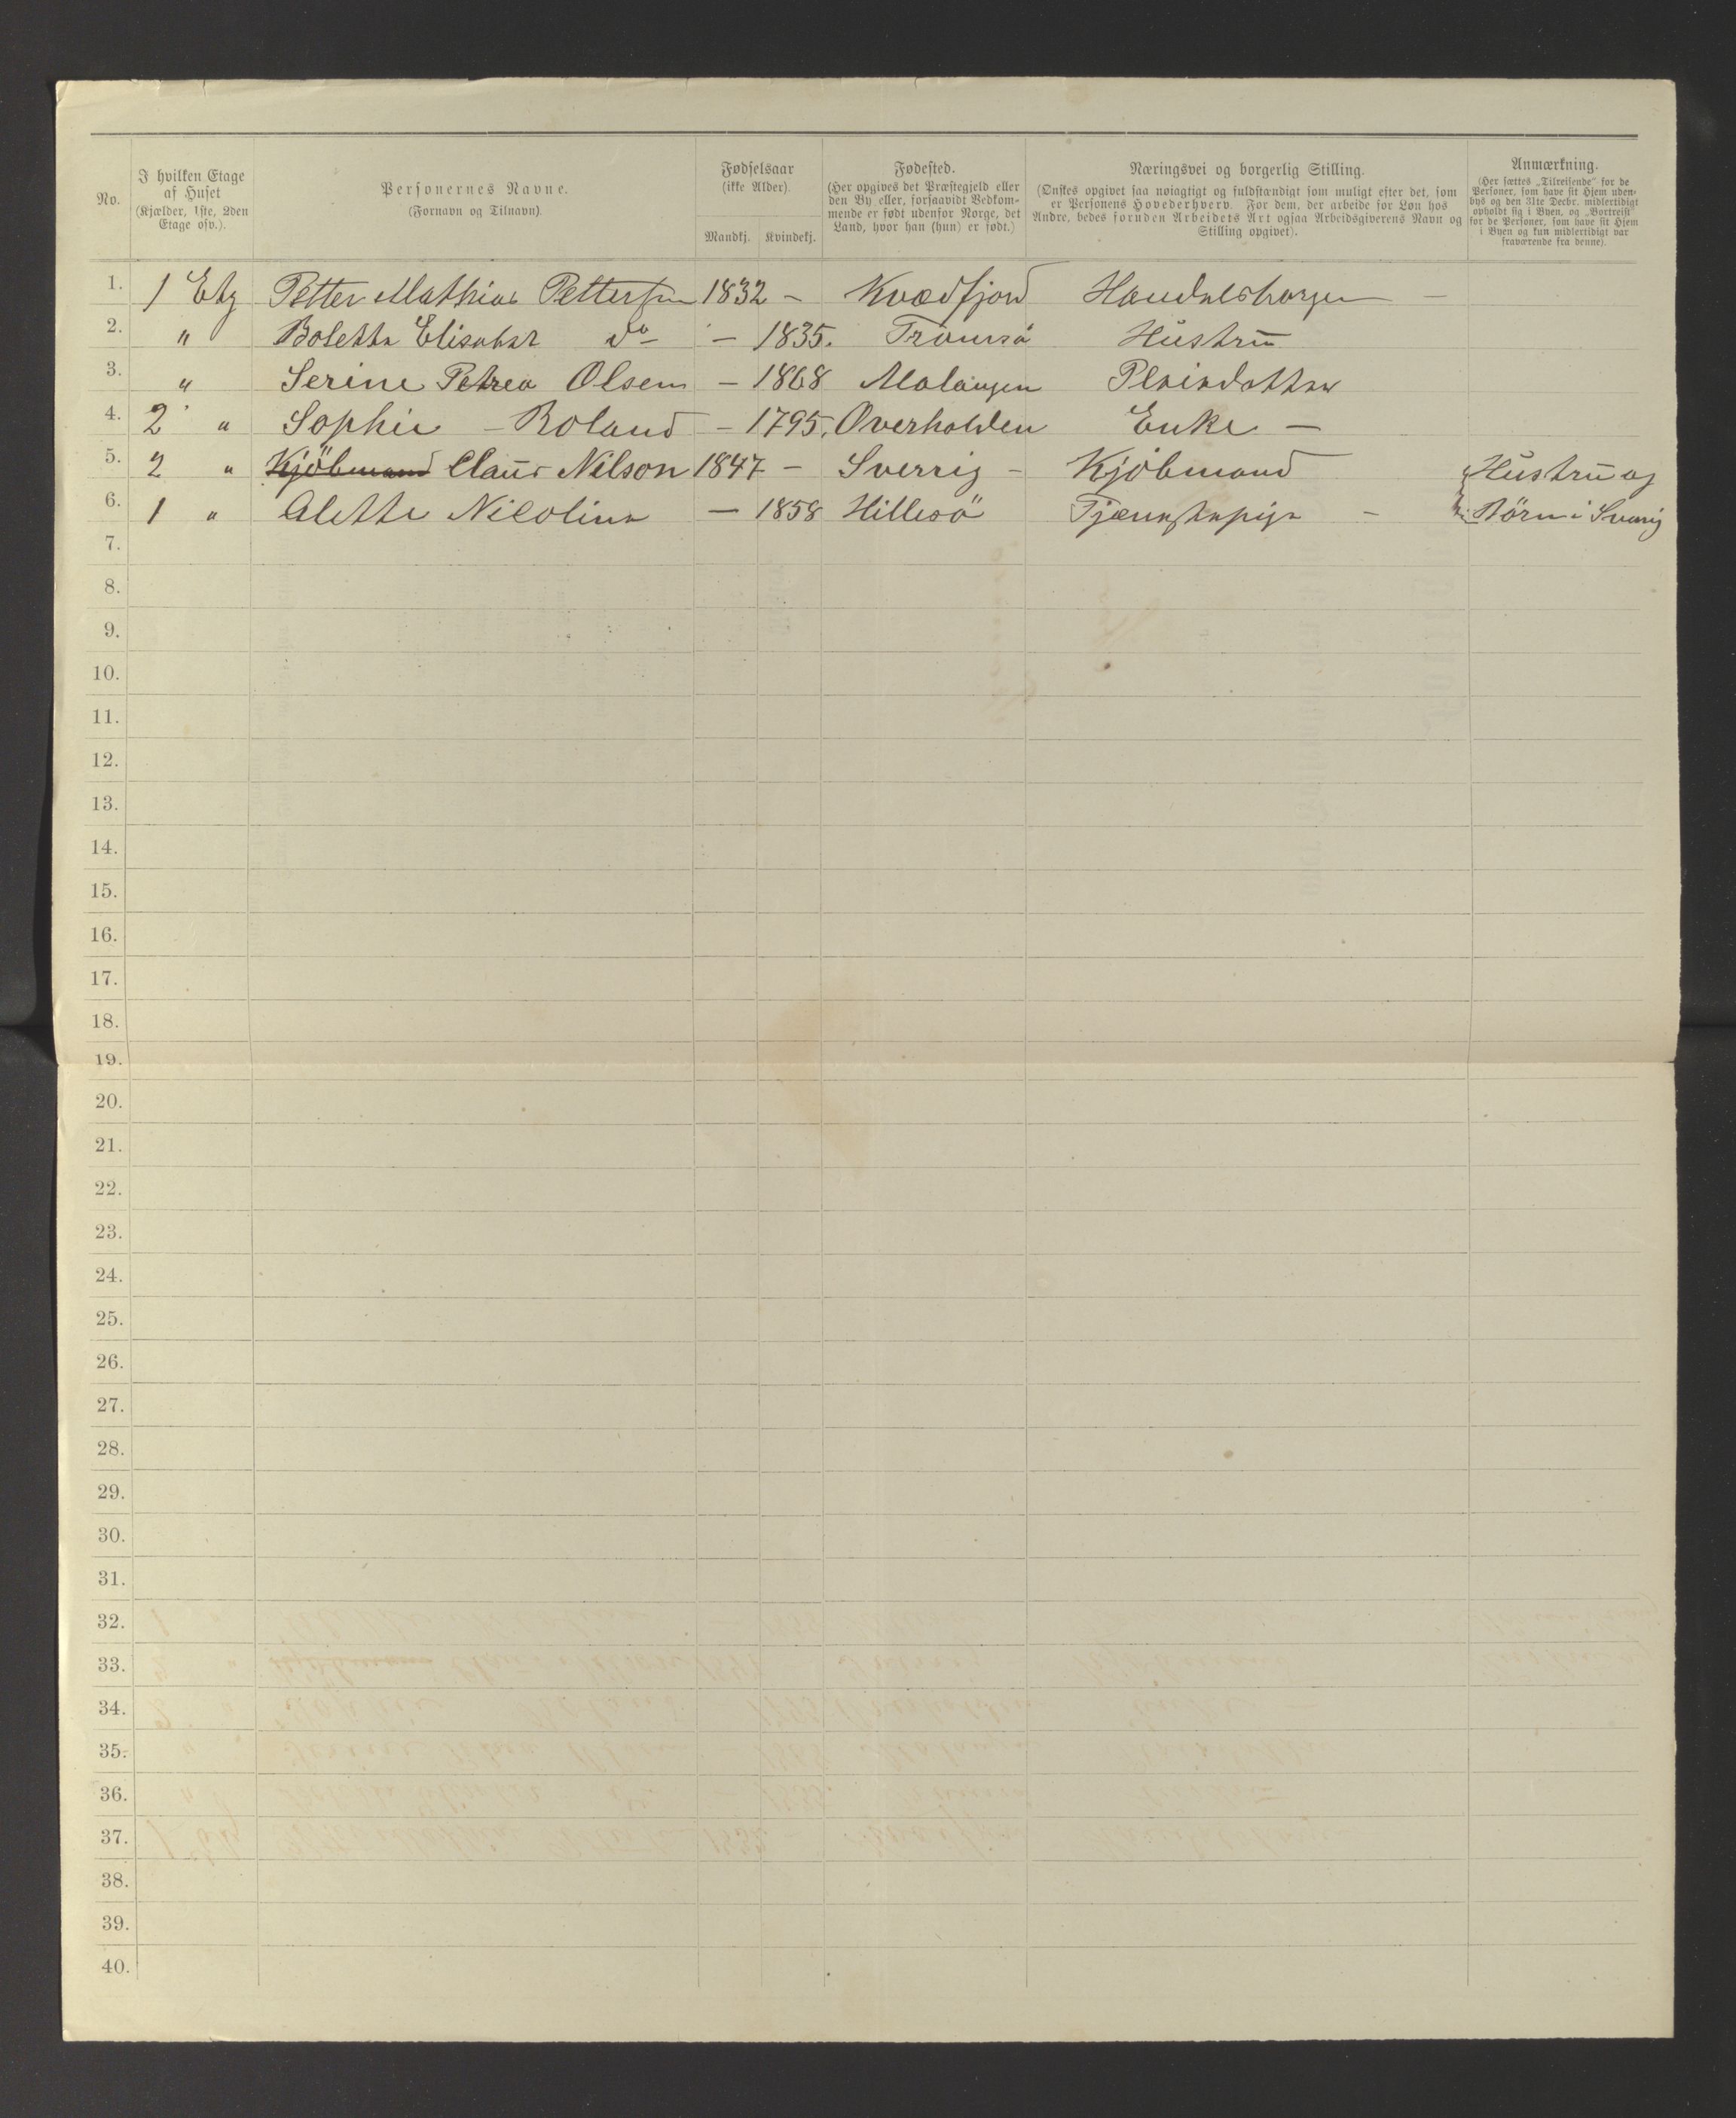 No.
I hvilken Etage
af Huset
(Kjælder, 1ste, 2den
Etage osv.).
Personernes Navne.
(Fornavn og Tilnavn).
Fødselsaar
(ikke Alder).
Mandkj. Kvindekj.
Fødested.
(Her opgives det Præstegjeld eller
den By eller, forsaavidt Vedkom-
mende er født udenfor Norge, det
Land, hvor han (hun) er født.)
Næringsvei og borgerlig Stilling.
(Ønskes opgivet saa nøiagtigt og fuldstændigt som muligt efter det, som
er Personens Hovederhverv. For dem, der arbeide for Løn hos
Andre, bedes foruden Arbeidets Art ogsaa Arbeidsgiverens Navn og
Stilling opgivet).
Anmærkning.
(Her sættes „Tilreisende" for de
Personer, som have sit Hjem uden-
bys og den 31te Decbr. midlertidigt
opholdt sig i Byen, og „Bortreist"
for de Personer, som have sit Hjem
i Byen og kun midlertidigt var
fraværende fra denne).
1. 1 Etg Petter Mathias Pettersen 1832 – Kvædfjord Handelsborger –
2. " Boletta Elisabet do – – 1835. Tromsö Hustru
3. " Serine Petrea Olsen – 1868 Malangen Pleiedatter
4. 2 " Sophie – Roland – 1795. Overhalden Enke –
5. 2 " Kjöbmand Claus Nilson 1847 – Sverrig – Kjöbmand Hustru og
6. 1 " Alette Nicolina – 1858 Hillesö Tjenestepige – Börn i Sverrig
7.
8.
9.
10.
11.
12.
13.
14.
15.
16.
17.
18.
19.
20.
21.
22.
23.
24.
25.
26.
27.
28.
29.
30.
31.
32.
33.
34.
35.
36.
37.
38.
39.
40.